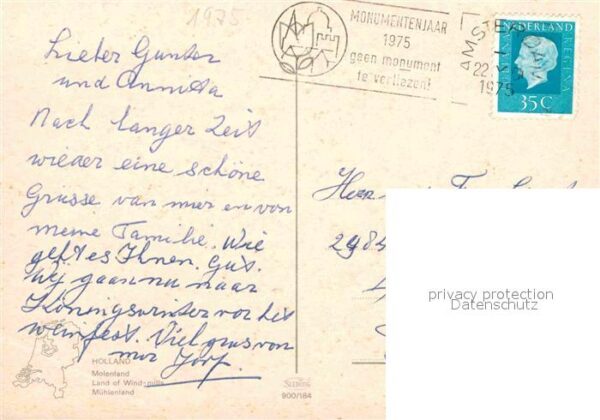 1975
MONUMENTENJAAR
1975
geen monument
te verliezen!
AMSTE
22.
1975
NEDERLAND
JULIANA REGINA
35C
Lieber Gunter
und Annitta
Nach langer Zeit
wieder eine schöne
Grusse van mier en von
meine Familie. Wie
geht es Ihnen. Gut.
Wij gaan nu naar
Koningswinter vor het
weinfest. Viel grus von
mir Jorf.
Herr
2984
privacy protection
Datenschutz
HOLLAND
Molenland
Land of Windmills
Mühlenland
900/184